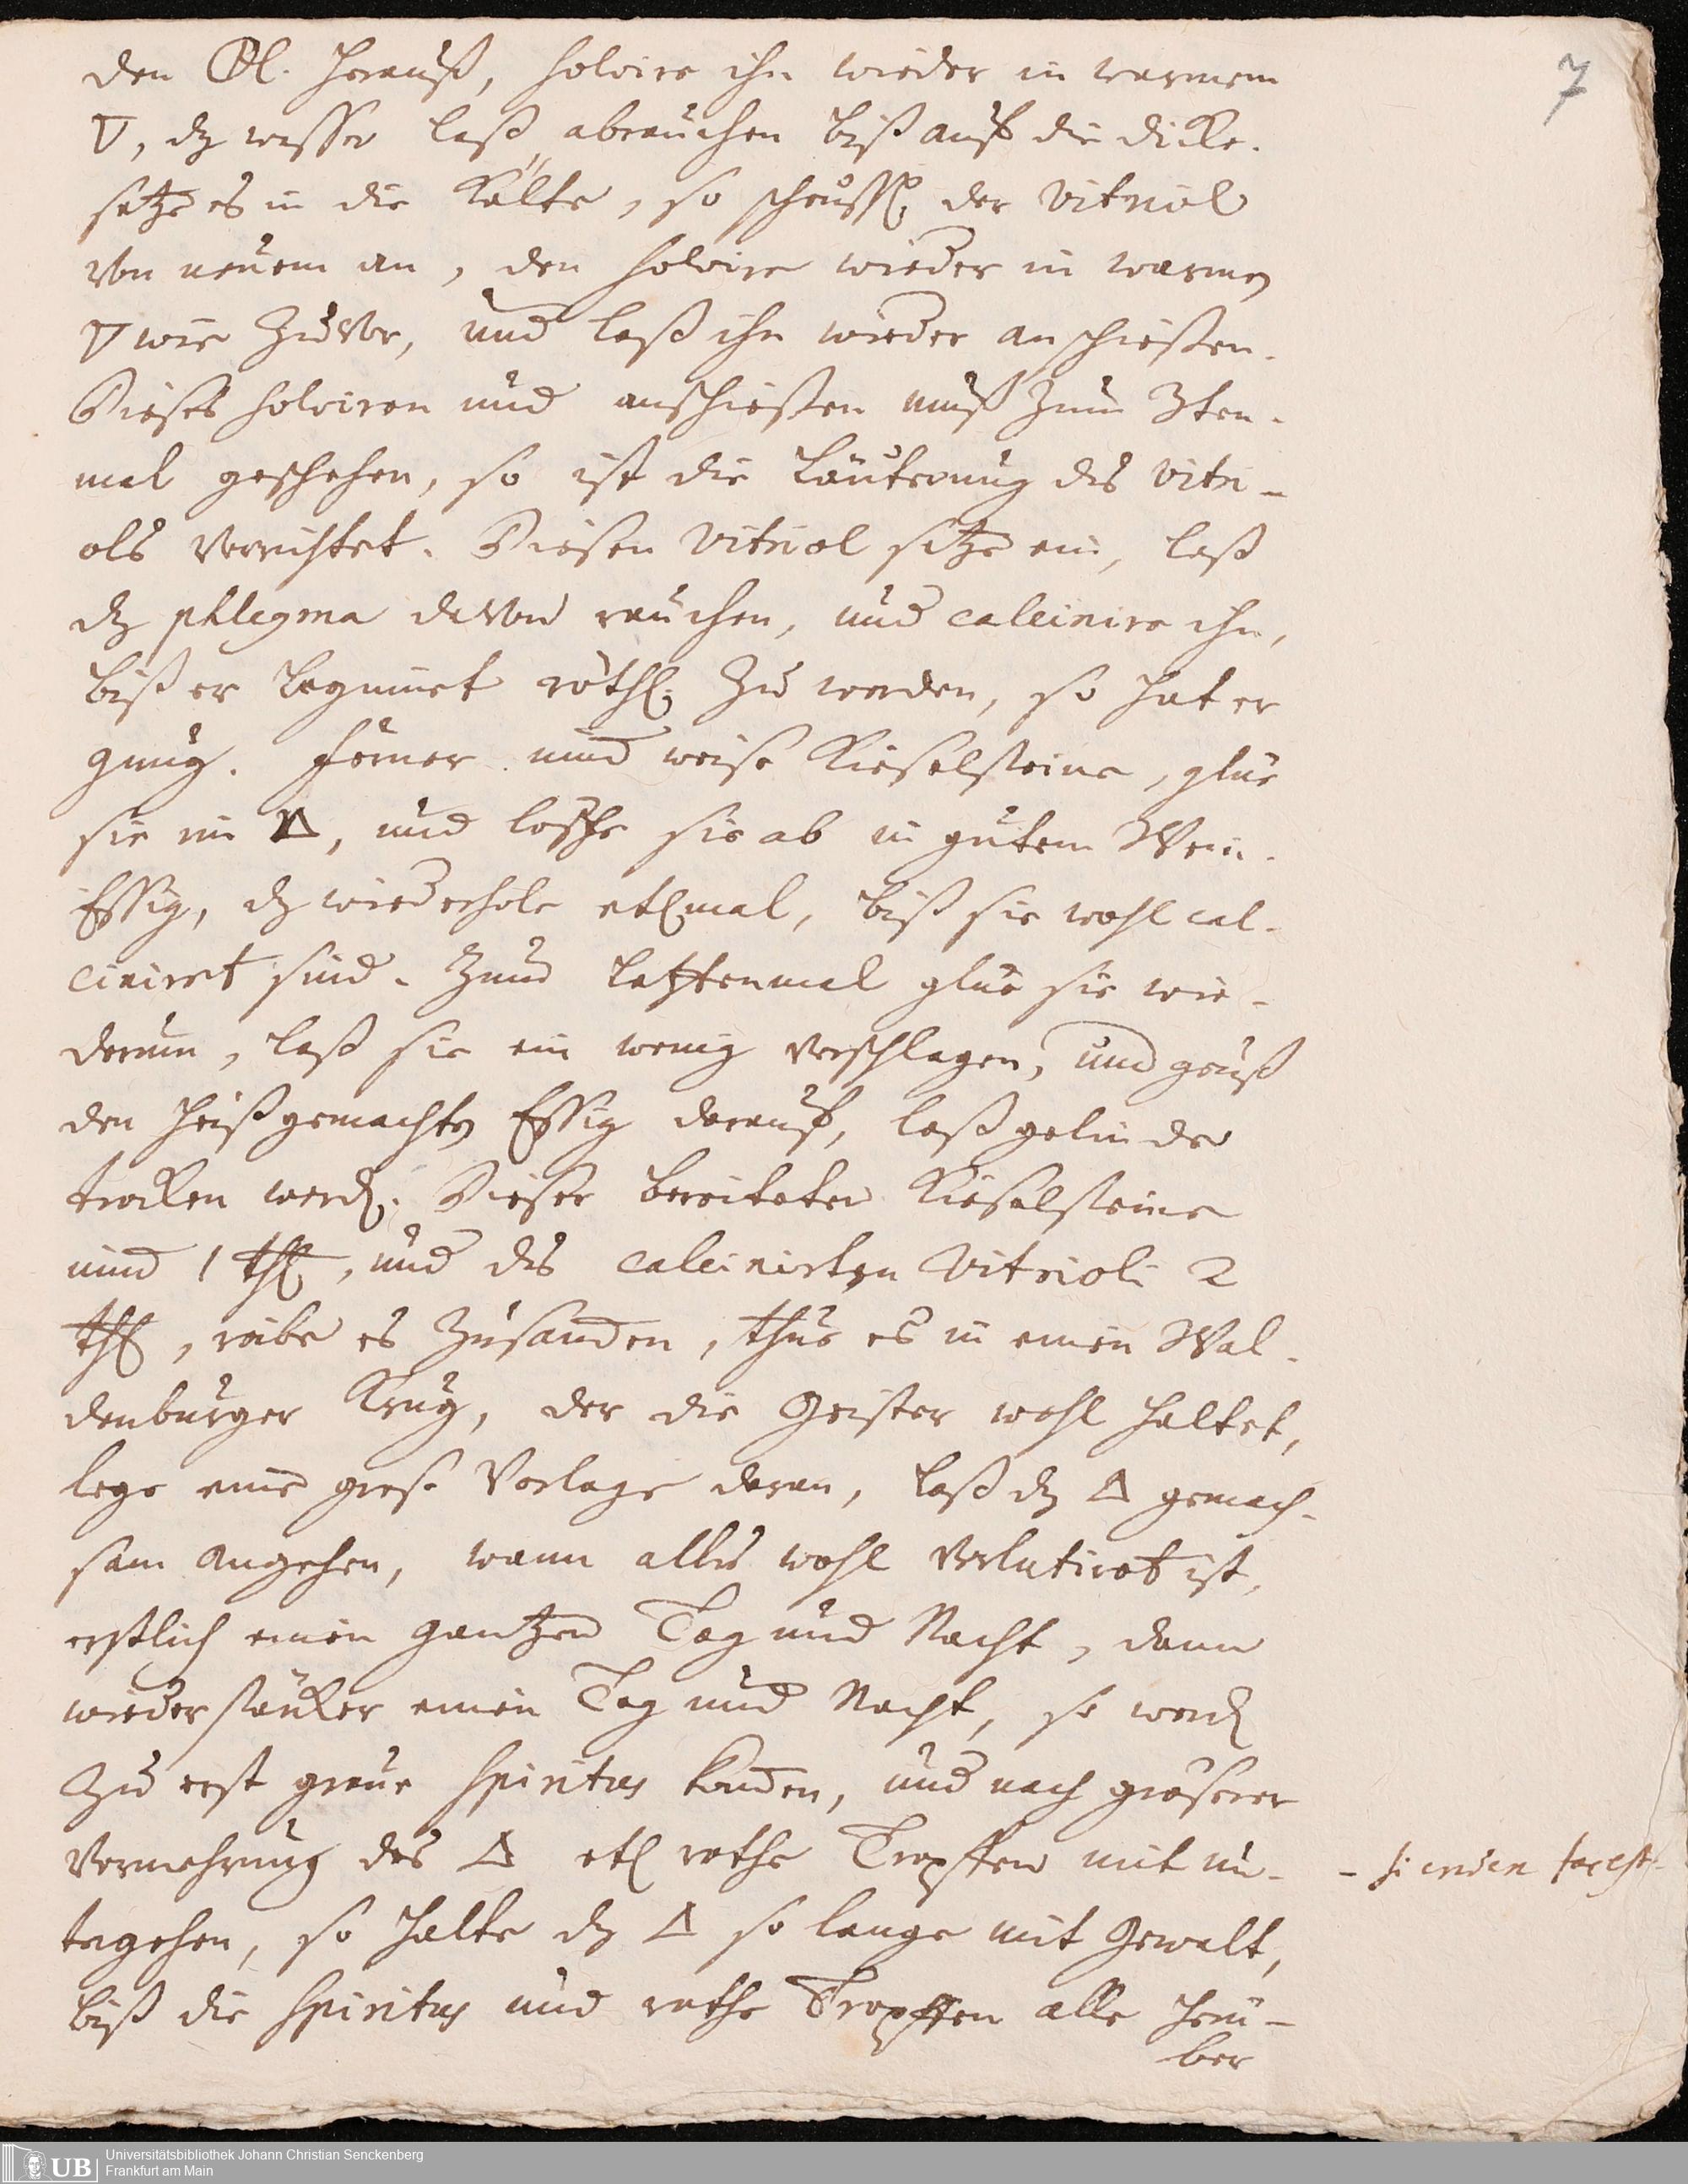 7
den 🜖l. herauß, solvire ihn wieder in warmem
🜄, dz wasser laß abrauchen biß auf die dicke.
setze es in die Kälte, so scheußt der Vitriol
von neuem an, den solvire wieder in warmen
🜄 wie zuvor, und laß ihn wieder anschießen.
Dieses solviren und anschießen muß zum 3ten-
mal geschehen, so ist die Läuterung des Vitri-
ols verrichtet. Diesen Vitriol setze ein, laß
dz phlegma davon rauchen, und calcinire ihn,
biß er beginnet röthl. zu werden, so hat er
gnug. Ferner nim̅ weise Kieselsteine, glüe
sie im 🜂, und lösche sie ab in gutem Wein-
Essig, dz wiederhole etl mal, biß sie wohl cal-
ciniret sind. Zum letztenmal glüe sie wie-
derum, laß sie ein wenig verschlagen, und geuß
den heißgemachten Essig darauf, laß gelinde
trocken werd. Dieser bereiteten Kieselsteine
nim̅ 1 thl, und des calcinirten Vitrioli 2
thl, reibe es zusam̅en, thue es in einen Wal-
denburger Krug, der die Geister wohl haltet,
lege eine große Vorlage daran, laß dz 🜂 gemach-
sam angehen, wann alles wohl verlutiret ist,
erstlich einen gantzen Tag und Nacht, dann
wieder stärcker einen Tag und Nacht, so werd
zu erst graue Spiritus kom̅en, und nach größerer
Vermehrung des 🜂 etl rothe Tropffen mit un-
tergehen, so halte dz 🜂 so lange mit Gewalt,
biß die Spiritus und rothe Tropffen alle herü-
ber
Universitätsbibliothek Johann Christian Senckenberg
Frankfurt am Main
UB